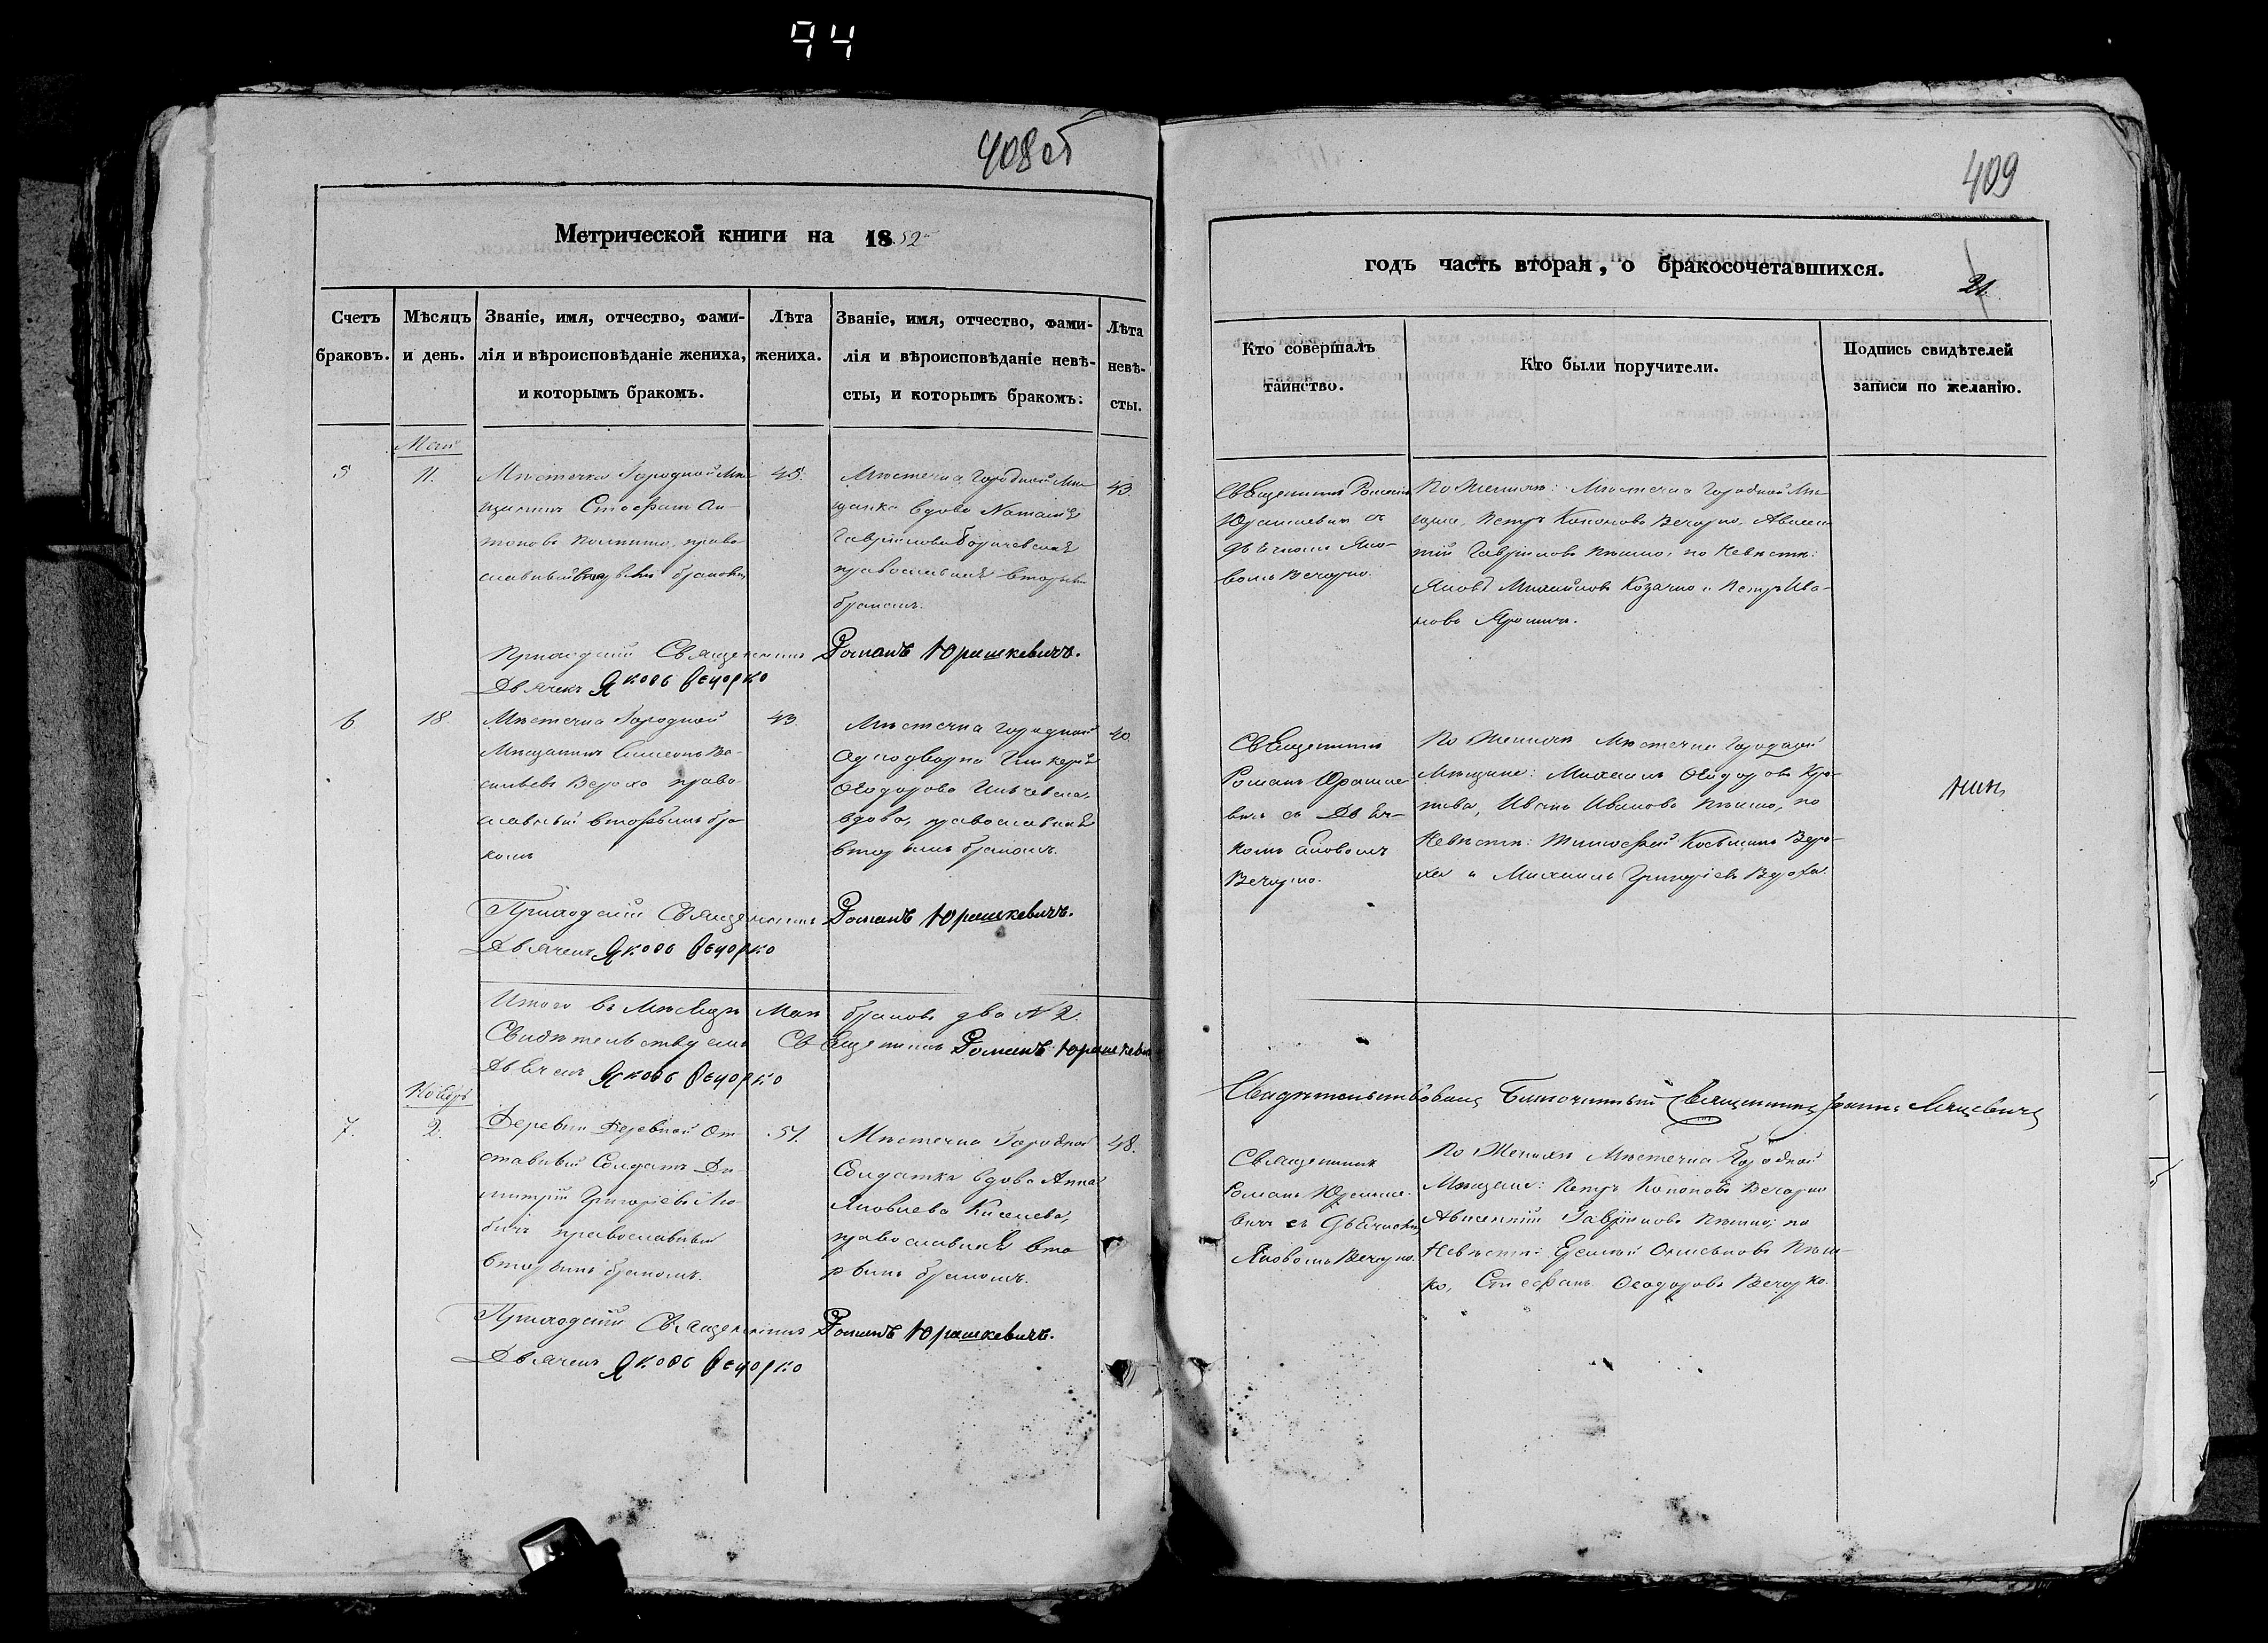 94
408 об
Метрической книги на 1852
Счетъ браковъ.
Мѣсяцъ и день.
Званіе, имя, отчество, фами-
лія и вѣроисповѣданіе жениха,
и которымъ бракомъ.
Лѣта жениха.
Званіе, имя, отчество, фами-
лія и вѣроисповѣданіе невѣ-
сты, и которымъ бракомъ.
Лѣта
невѣ-
сты.
Май
5
11.
Мѣстечка Городной Мѣ-
щанинъ Стефанъ Ан-
тоновъ право
славный бракомъ
45.
Мѣстечка Городной Мѣ
щанка вдова Наталія
Гаврілова
православная вторымъ
бракомъ.
43.
Приходскій Священникъ Романъ Юрашкевичъ.
Дьячекъ Яковъ Вечорко
6
18.
Мѣстечка Городной
Мѣщанинъ Симеонъ Ва-
сильевъ Вереха право
славный вторымъ бра
комъ
43
Мѣстечка Городной
Однодворка Гликерія
Ѳеодорова
вдова, православная
вторымъ бракомъ.
40.
Приходскій Священникъ Романъ Юрашкевичъ.
Дьячекъ Яковъ Вечорко
Итого въ Мѣсяцѣ Маѣ браковъ два № 2.
Свидѣтельствуемъ Священникъ Романъ Юрашкевичъ
Дьячекъ Яковъ Вечорко
Ноябрь
7.
2.
Деревни Деревной От
ставный Солдатъ Ди
митрій Григоріевъ
православный
вторымъ бракомъ.
51.
Мѣстечка Городной
Солдатка вдова Анна
Яковлева Киселева,
православная вто
рымъ бракомъ.
48.
Приходскій Священникъ Романъ Юрашкевичъ.
Дьячекъ Яковъ Вечорко
409
годъ часть вторая, о бракосочетавшихся.
21.
Кто совершалъ
таинство.
Кто были поручители.
Подпись свидѣтелей
записи по желанію.
Священникъ Романъ
Юрашкевичъ съ
дьячкомъ Яко-
вомъ Вечорко.
По Женихѣ: Мѣстечка Городной Мѣ-
щане, Петръ Кононовъ Вечорко, Авксен
тій Гавріиловъ Пѣшко, по Невѣстѣ:
Яковъ Михайловъ Козачко и Петръ Ива-
новъ
Священникъ
Романъ Юрашке
вичъ съ Дьяч-
комъ Яковомъ
Вечорко.
По Женихѣ Мѣстечка Городной
Мѣщане: Михаилъ Ѳеодоровъ
Иванъ Ивановъ Пѣшко, по
Невѣстѣ: Тимофей Косьминъ Вере-
ха и Михаилъ Григоріевъ Вереха.
Свидѣтельствовалъ Благочинный Священникъ Іоаннъ
Священникъ
Романъ Юрашке-
вичъ съ Дьячкомъ
Яковомъ Вечорко.
По Женихѣ Мѣстечка Городной
Мѣщане: Петръ Кононовъ Вечорко
Авксентій Гавріиловъ Пѣшко; по
Невѣстѣ: Пѣш-
ко, Стефанъ Ѳеодоровъ Вечорко.